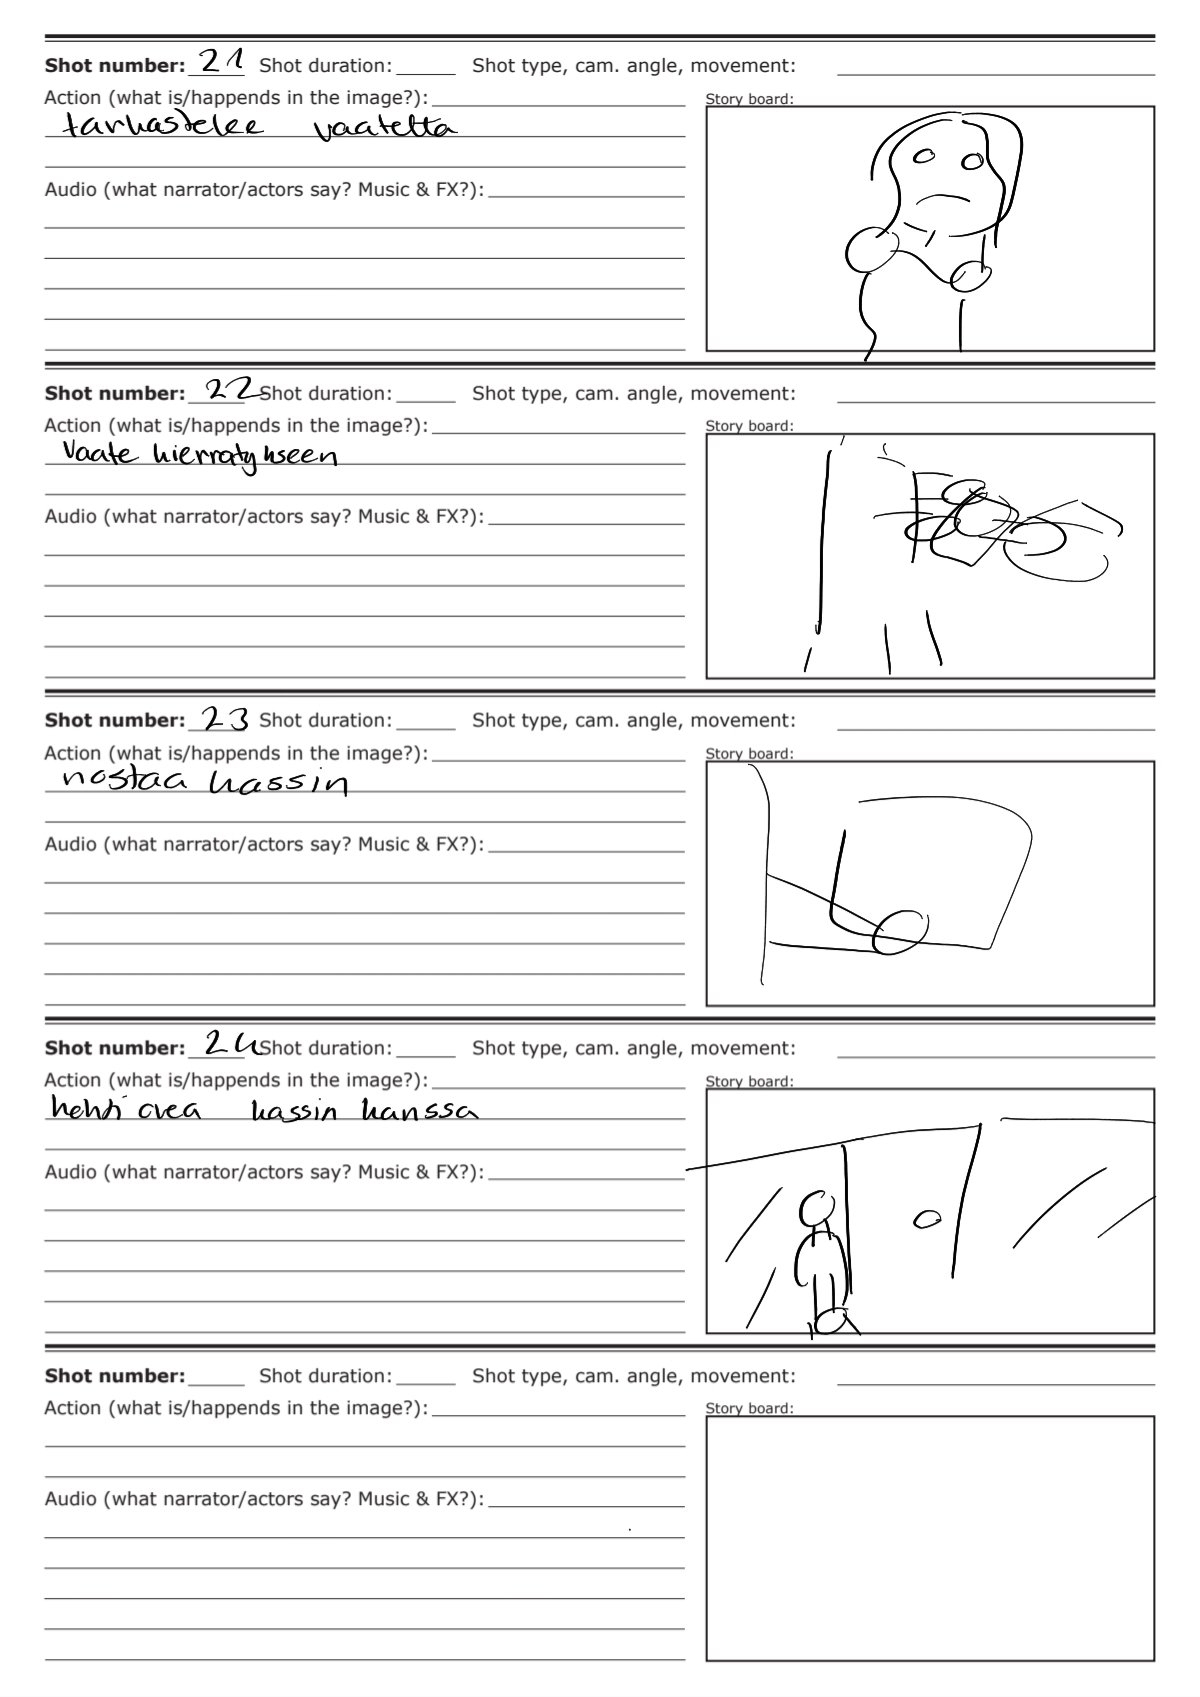 Shot number: 21 Shot duration: Shot type, cam. angle, movement:
Action (what is/happends in the image?):
Story board:
tarkastelee vaatetta
Audio (what narrator/actors say? Music & FX?):
Shot number: 22 Shot duration: Shot type, cam. angle, movement:
Action (what is/happends in the image?):
Story board:
Vaate kierrätykseen
Audio (what narrator/actors say? Music & FX?):
Shot number: 23 Shot duration: Shot type, cam. angle, movement:
Action (what is/happends in the image?):
Story board:
nostaa kassin
Audio (what narrator/actors say? Music & FX?):
Shot number: 24 Shot duration: Shot type, cam. angle, movement:
Action (what is/happends in the image?):
Story board:
kohti ovea kassin kanssa
Audio (what narrator/actors say? Music & FX?):
Shot number: Shot duration: Shot type, cam. angle, movement:
Action (what is/happends in the image?):
Story board:
Audio (what narrator/actors say? Music & FX?):